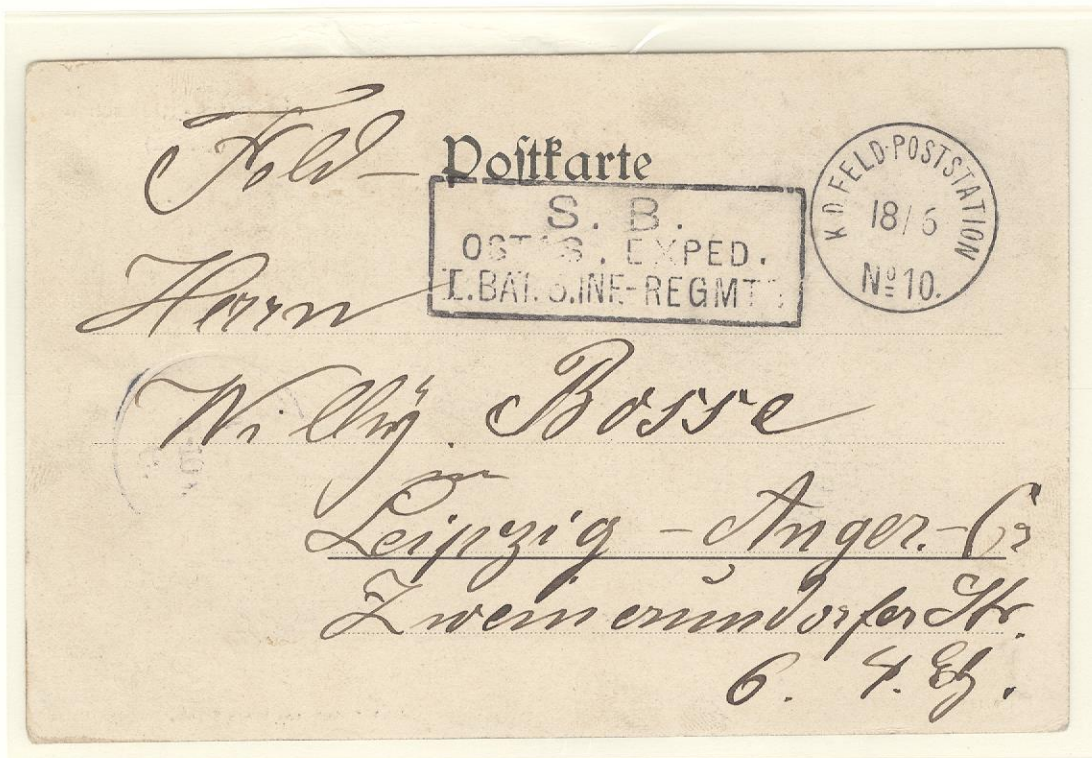 Feld- Postkarte
S. B.
OSTAS. EXPED.
I. BAT. 5. INF-REGMTS
K.D. FELD-POSTSTATION
18/6
No 10.
Herrn
Willÿ. Bosse
in
Leipzig - Anger.-Cr
Zweinaundorfer Str.
6. 4. Etg.